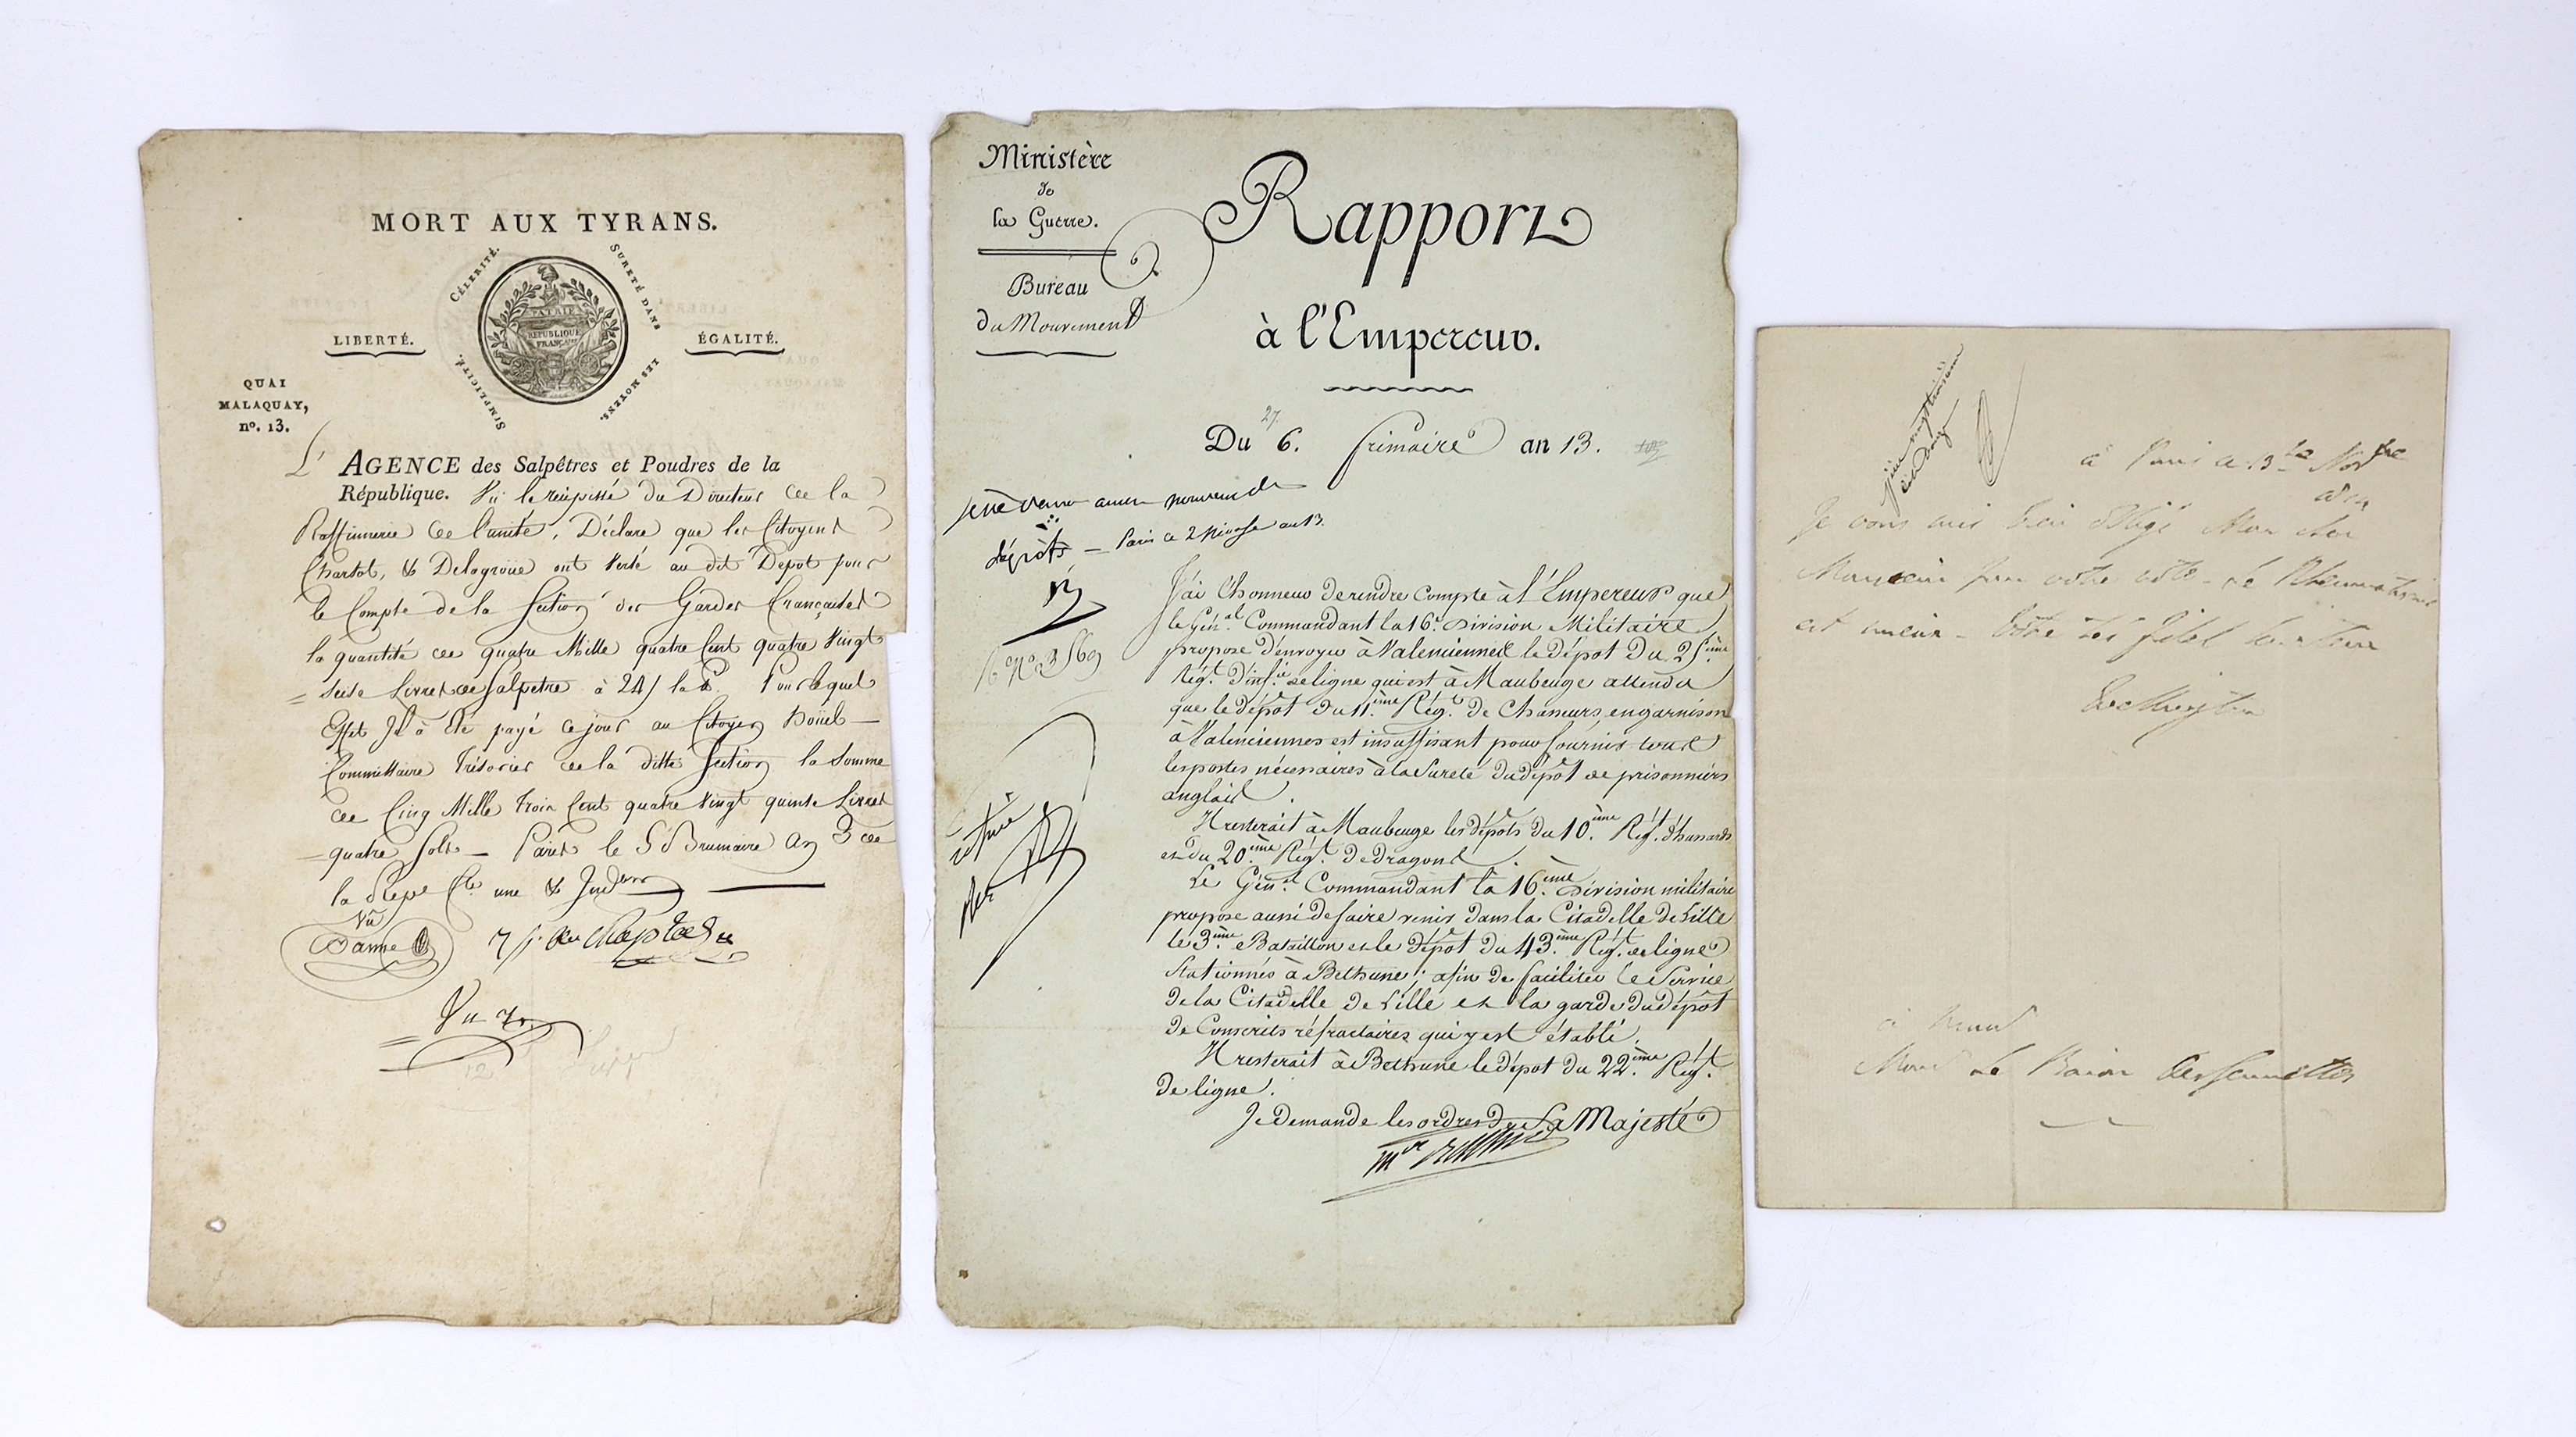 MORT AUX TYRANS.
CÉLERITÉ.
SURETÉ DANS
LES MOYENS.
SIMPLICITÉ.
PATRIE
RÉPUBLIQUE
FRANÇAISE
LIBERTÉ.
ÉGALITÉ.
QUAI
MALAQUAY,
nº. 13.
L' AGENCE des Salpêtres et Poudres de la
République. Vû le récépissé du Directeur de la
Raffinerie de l'unité, Déclare que les Citoyens
Charlot, & Delagroüe ont versé au dit Dépot pour
le Compte de la Section des Gardes Françaises
la quantité de quatre Mille quatre Cent quatre Vingt
seize Livres de Salpetre à 24 s la Pour lequel
Effet Il a été payé ce jour au Citoyen
Commissaire Trésorier de la ditte Section la Somme
de Cinq Mille Trois Cent quatre Vingt quinze Livres
quatre Sols — Paris le 5 Brumaire an 3 de
la Repe. une &
Vû
Chaptal
Vu
12
Ministère
de
la Guerre.
Bureau
du Mouvement
Rapport
à l'Empereur.
27
Du 6. frimaire an 13.
aucun mouvement de
dépôts — Paris ce 2 Nivose an 13.
J'ai l'honneur de rendre Compte à l'Empereur que
le Génal. Commandant la 16e. Division Militaire
propose d'envoyer à Valenciennes le dépot du 25ème
Régt. d'infie. de ligne qui est à Maubeuge attendu
que le dépôt du 11ème. Régt. de Chasseurs, en garnison
à Valenciennes est insuffisant pour fournir tous
les postes nécessaires à la Sureté du dépôt de prisonniers
anglais.
Il resterait à Maubeuge les dépôts du 10ème. Régt. d'hussards
et du 20ème. Régt. de dragons.
Le Génal. Commandant la 16ème. Division militaire
propose aussi de faire venir dans la Citadelle de Lille
le 3ème. Bataillon et le dépot du 43ème. Régt. de ligne
Stationnés à Bethune; afin de faciliter le Service
de la Citadelle de Lille et la garde du dépôt
de Conscrits réfractaires qui y est établi.
Il resterait à Bethune le dépot du 22ème. Régt.
de ligne.
Je demande les ordres de Sa Majesté
à Paris ce 13
Je vous suis bien obligé Mon cher
Monsieur pour votre note. Le Rhumatisme
est mieux
Wellington
à Monsr
Monsr Le Baron Desgenettes